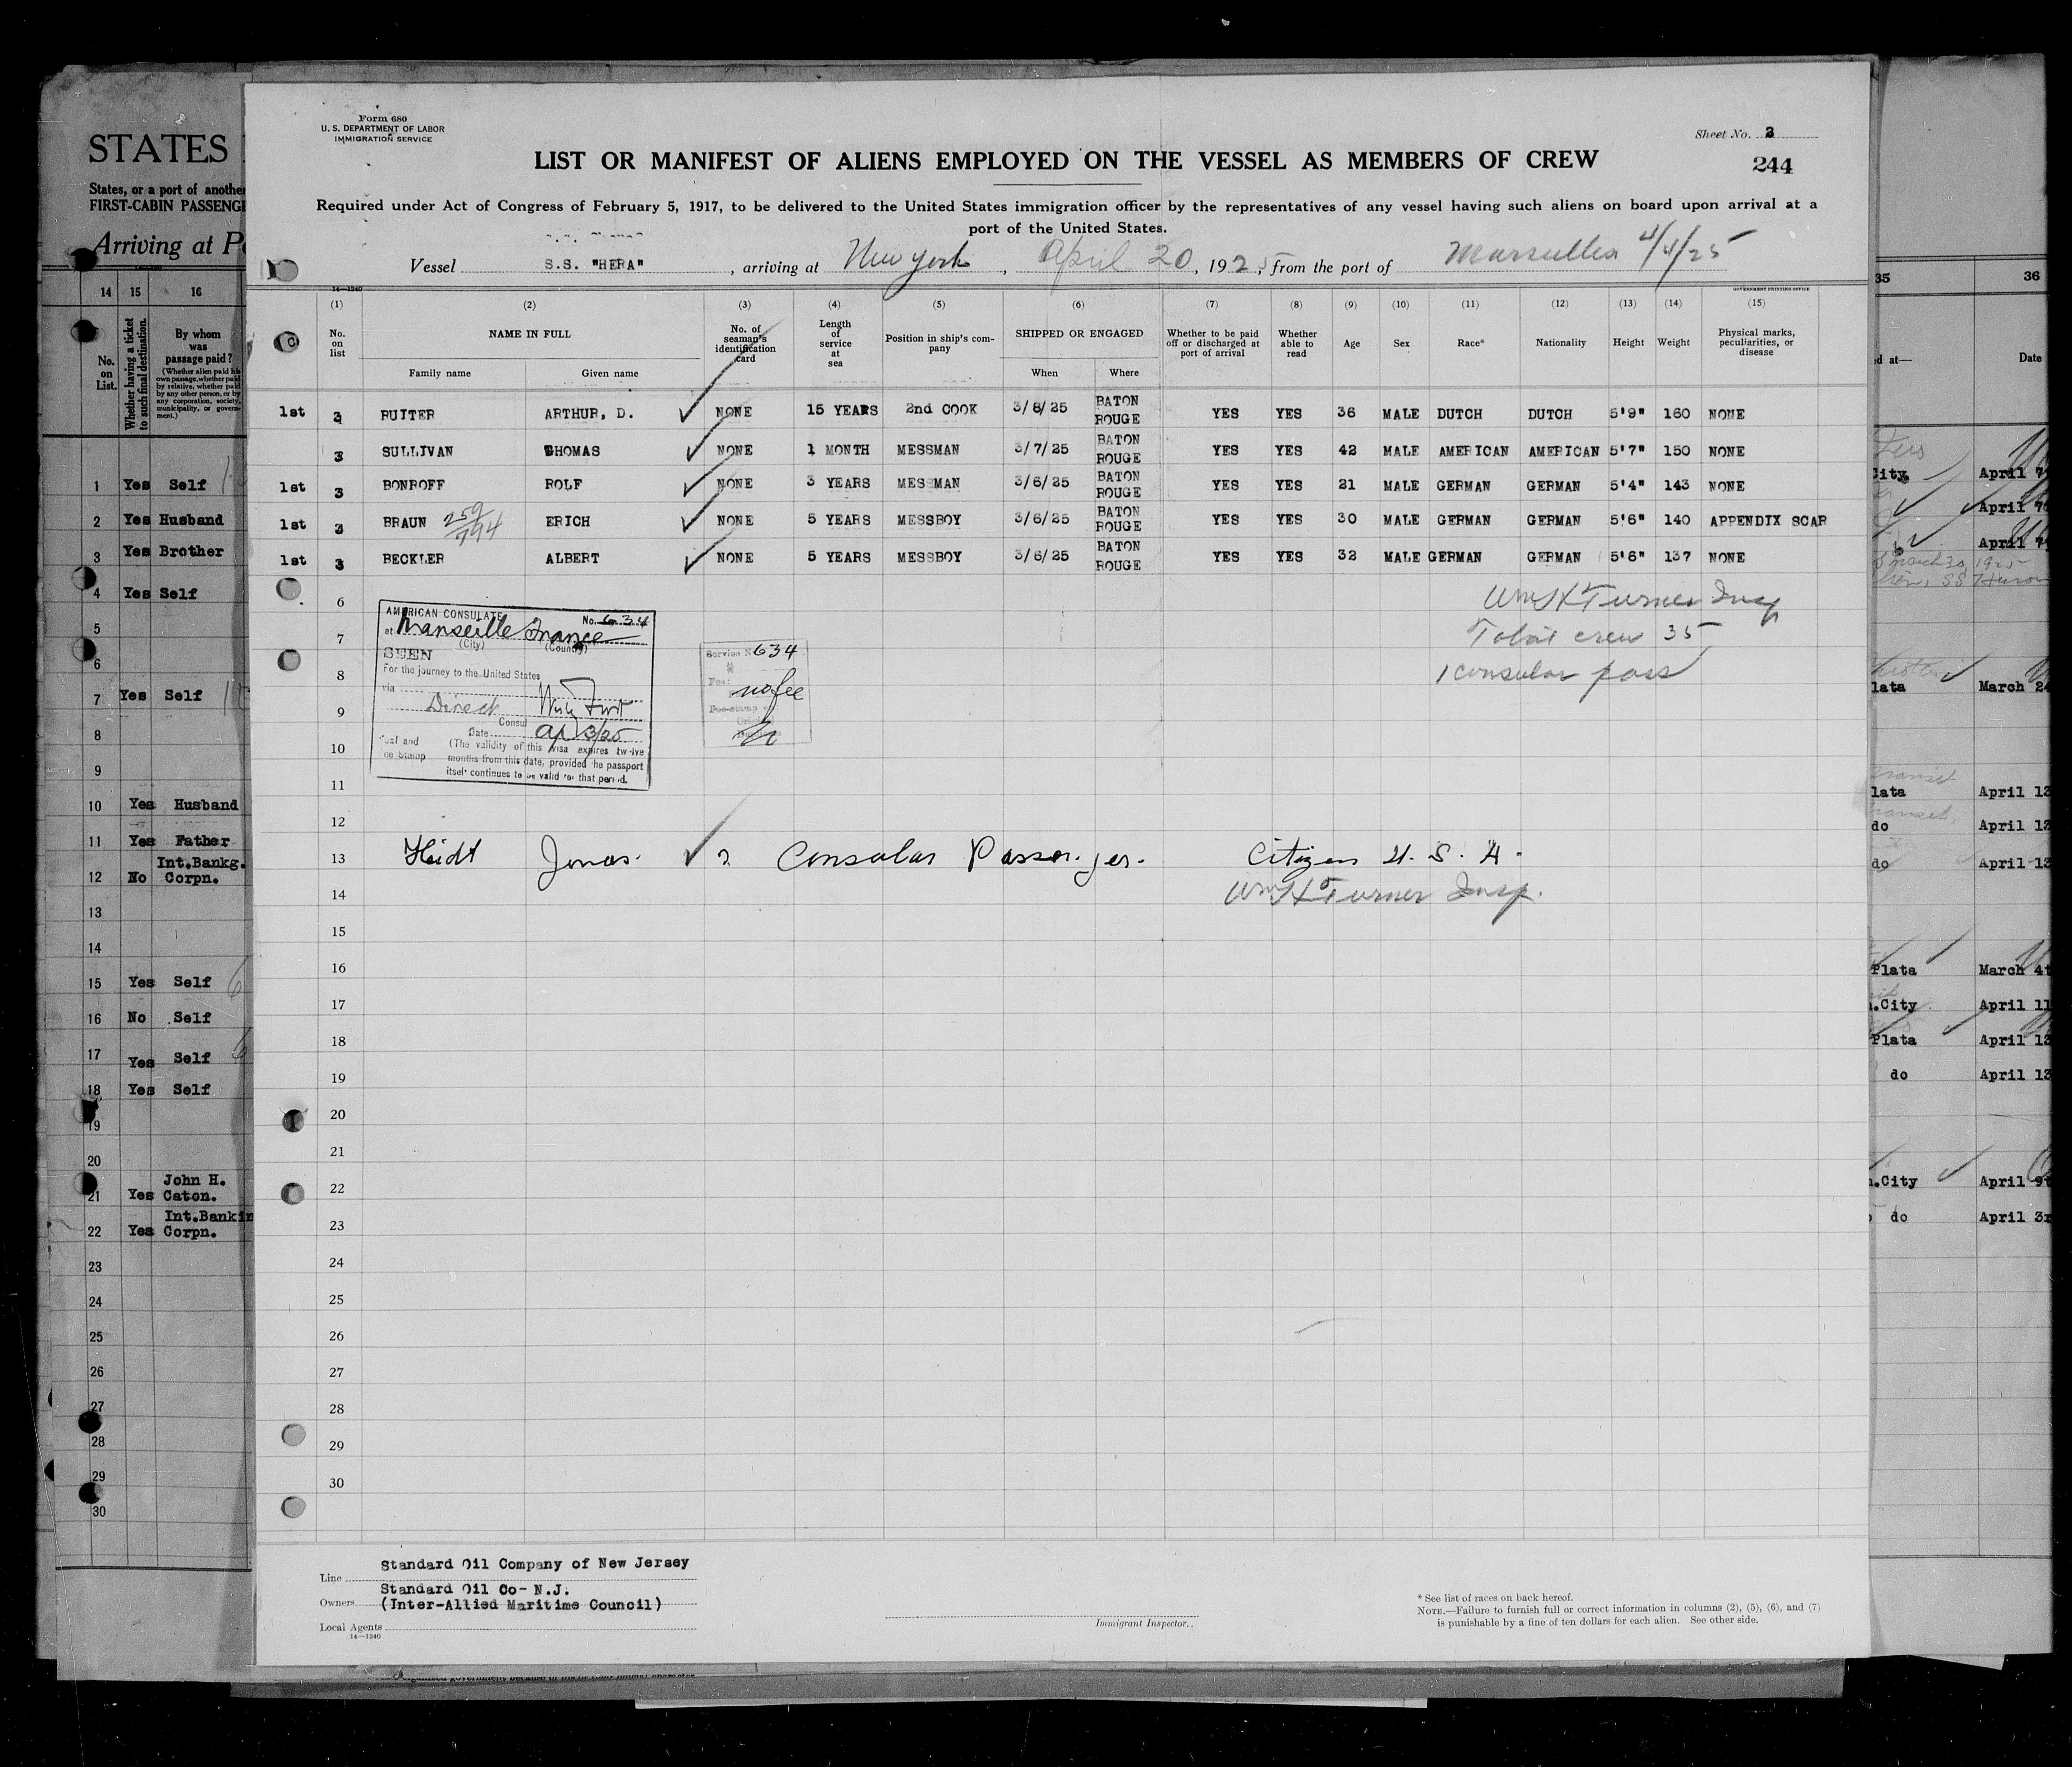 Form 680
U. S. DEPARTMENT OF LABOR
IMMIGRATION SERVICE
Sheet No. 3
244
LIST OR MANIFEST OF ALIENS EMPLOYED ON THE VESSEL AS MEMBERS OF CREW
Required under Act of Congress of February 5, 1917, to be delivered to the United States immigration officer by the representatives of any vessel having such aliens on board upon arrival at a
port of the United States.
Vessel S.S. "HERA", arriving at New York, April 20, 1925, from the port of Marseilles 4/4/25
14—1240 GOVERNMENT PRINTING OFFICE
(1) (2) (3) (4) (5) (6) (7) (8) (9) (10) (11) (12) (13) (14) (15)
No. on list NAME IN FULL No. of seaman's identification card Length of service at sea Position in ship's company SHIPPED OR ENGAGED Whether to be paid off or discharged at port of arrival Whether able to read Age Sex Race* Nationality Height Weight Physical marks, peculiarities, or disease
Family name Given name When Where
1st 3 RUITER ARTHUR, D. NONE 15 YEARS 2nd COOK 3/8/25 BATON ROUGE YES YES 36 MALE DUTCH DUTCH 5'9" 160 NONE
3 SULLIVAN THOMAS NONE 1 MONTH MESSMAN 3/7/25 BATON ROUGE YES YES 42 MALE AMERICAN AMERICAN 5'7" 150 NONE
1st 3 BONROFF ROLF NONE 3 YEARS MESSMAN 3/6/25 BATON ROUGE YES YES 21 MALE GERMAN GERMAN 5'4" 143 NONE
1st 3 BRAUN 259/794 ERICH NONE 5 YEARS MESSBOY 3/6/25 BATON ROUGE YES YES 30 MALE GERMAN GERMAN 5'6" 140 APPENDIX SCAR
1st 3 BECKLER ALBERT NONE 5 YEARS MESSBOY 3/6/25 BATON ROUGE YES YES 32 MALE GERMAN GERMAN 5'6" 137 NONE
6 Wm H Turner Insp
7 Total crew 35
8 1 consular pass
9
10
11
12
AMERICAN CONSULATE No. 634
at Marseille France
(City) (Country)
SEEN
For the journey to the United States
via
Direct
Consul
Date Ap 3/25
(The validity of this visa expires twelve
months from this date, provided the passport
itself continues to be valid for that period.
Service No 634
Fee: no fee
13 Heidt Jonas Consular Passenger. Citizen U. S. A.
14 Wm H Turner Insp.
15
16
17
18
19
20
21
22
23
24
25
26
27
28
29
30
Line Standard Oil Company of New Jersey
Owners Standard Oil Co- N.J.
(Inter-Allied Maritime Council)
Local Agents
14—1240
Immigrant Inspector.
* See list of races on back hereof.
NOTE.—Failure to furnish full or correct information in columns (2), (5), (6), and (7)
is punishable by a fine of ten dollars for each alien. See other side.
STATES
States, or a port of another
FIRST-CABIN PASSENG
Arriving at P
14 15 16
No. on List. Whether having a ticket to such final destination. By whom was passage paid?
(Whether alien paid his own passage, whether paid by relative, whether paid by any other person, or by any corporation, society, municipality, or government.)
1 Yes Self
2 Yes Husband
3 Yes Brother
4 Yes Self
5
6
7 Yes Self
8
9
10 Yes Husband
11 Yes Father
12 No Int.Bankg. Corpn.
13
14
15 Yes Self
16 No Self
17 Yes Self
18 Yes Self
19
20
21 Yes John H. Caton.
22 Yes Int.Bankin Corpn.
23
24
25
26
27
28
29
30
35 36
d at— Date
City. April 7
April 7
April 7
March 30, 1925
lata March 24
lata April 13
do April 13
do April 13
Plata March 4t
.City April 11
Plata April 13
do April 13
.City April 9t
do April 3r